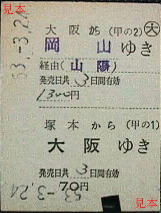 見本
大阪から(甲の2) 大
岡山ゆき
経由(山陽)
発売日共3日間有効
1300円
53.-3.24
塚本から(甲の1)
大阪ゆき
発売日共3日間有効
70円
53.-3.24
見本